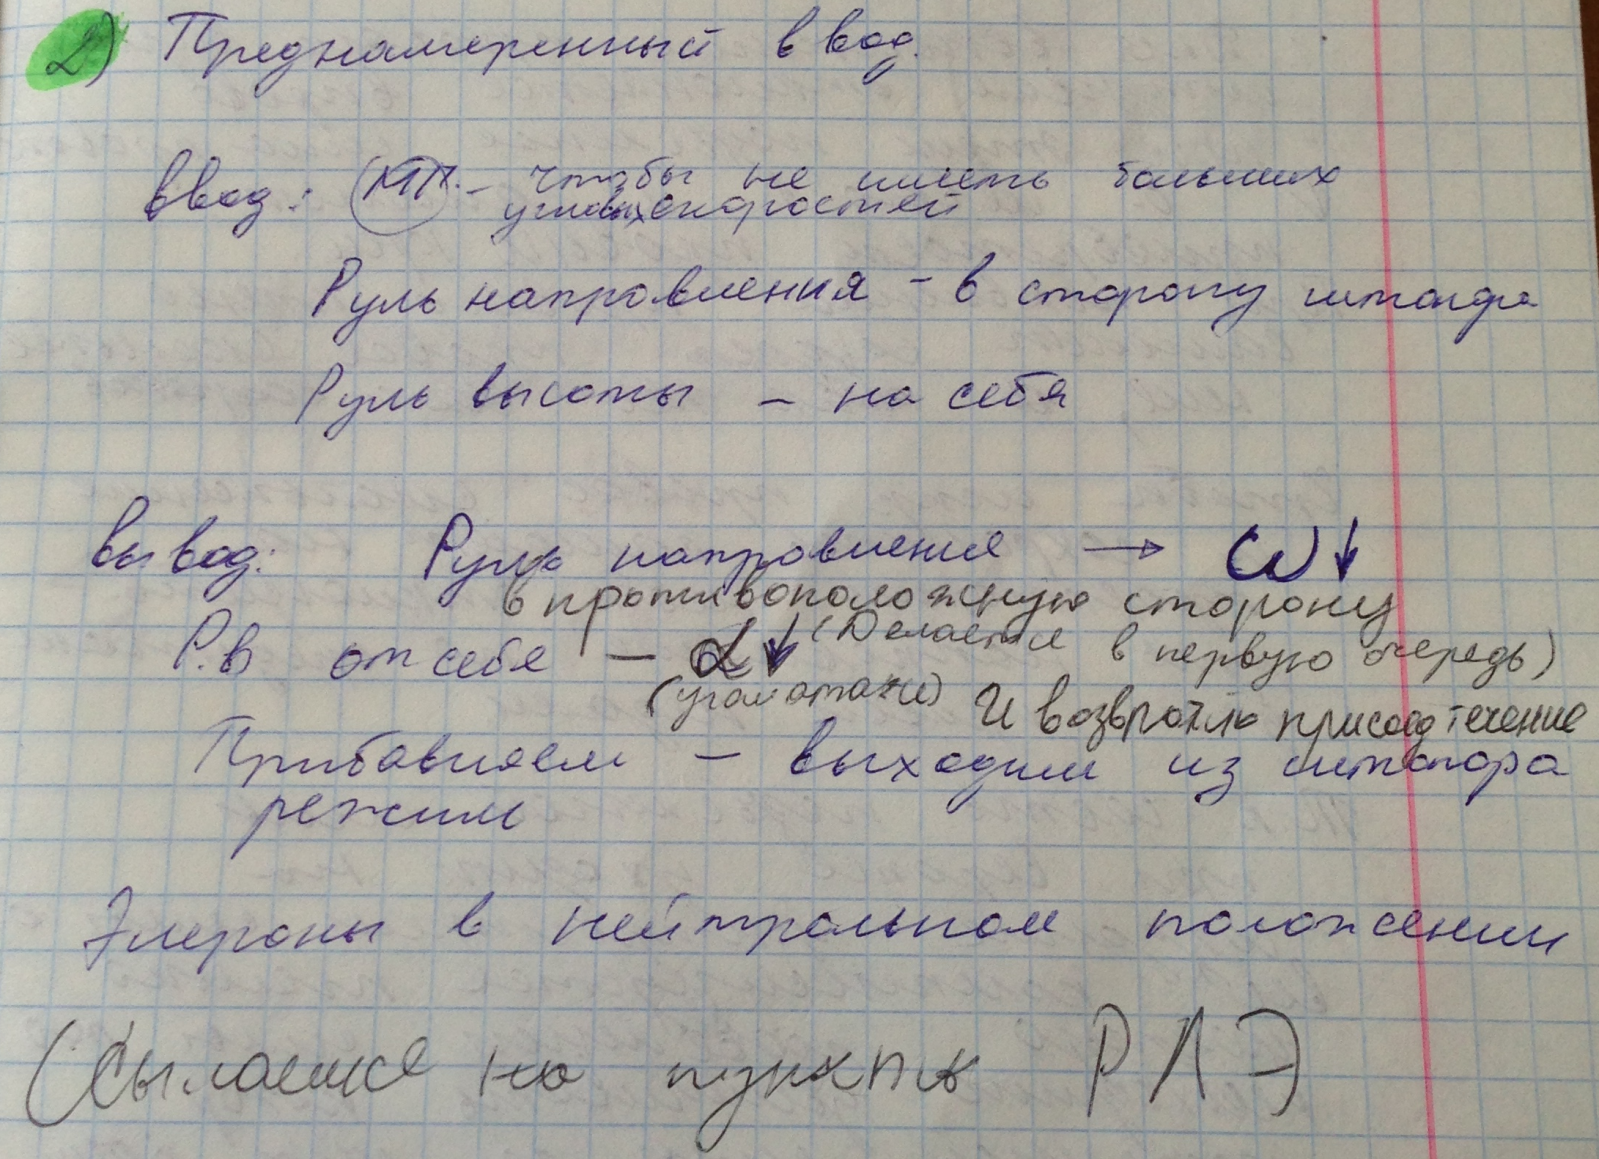 2) Преднамеренный ввод.
Ввод: МГ. - чтобы не иметь больших
угловых скоростей
Руль направления - в сторону штопора
Руль высоты - на себя
Вывод: Руль направления → ω↓
в противоположную сторону
Р.В от себя - α↓ (Делается в первую очередь)
(угол атаки) и возвратло присоед течение
Прибавляем - выходим из штопора
режим
Элероны в нейтральном положении
(Сылаемся на пункты РЛЭ